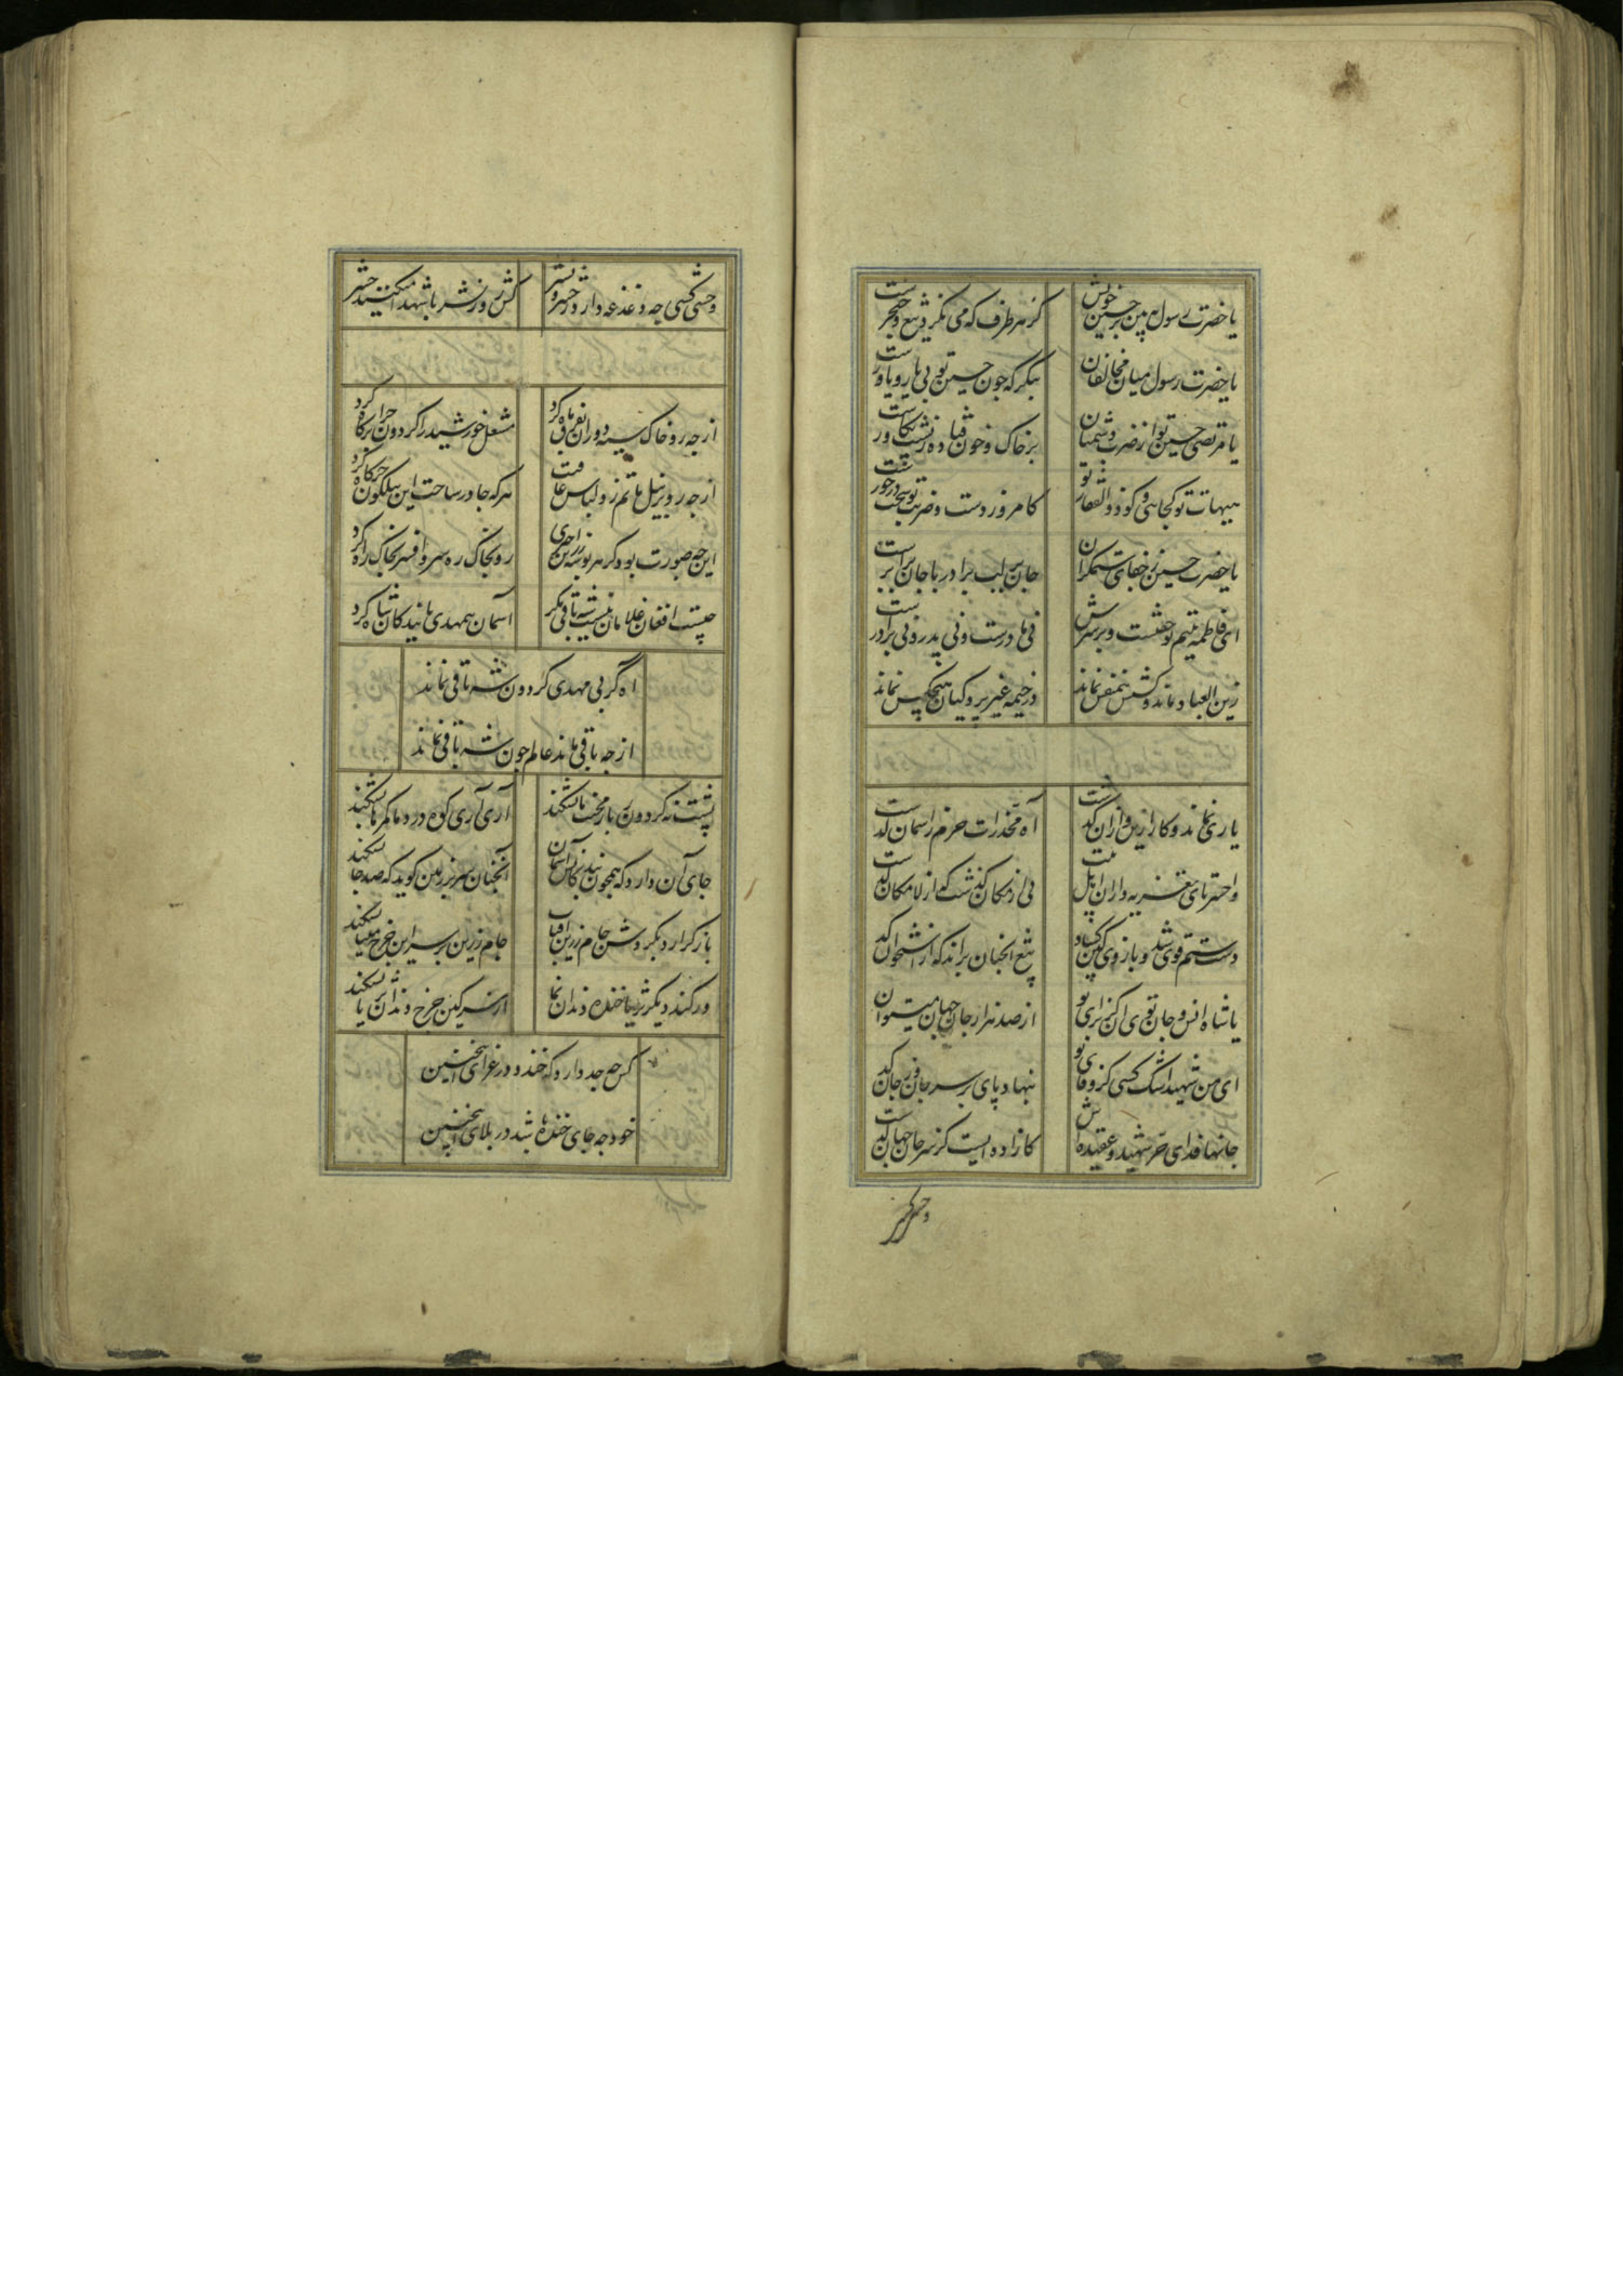 یا حضرت رسول ببین بر حسین خویش کز هر طرف که می نگرد تیغ و خنجرست
یا حضرت رسول میان مخالفان بنگر که چون حسین تو بی یار و یاورست
یا مرتضی حسین تو از ضرب دشمنان بر خاک و خون فتاده
هیهات تو کجائی و کو ذوالفقار تو کامروز دست و ضربت تو سخت درخورست
یا حضرت حسن ز جفای ستمگران جان بر لب برادر با جان برابرست
ای فاطمه یتیم تو خفتست و بر سرش نی مادرست و نی پدر و نی برادرست
زین العباد ماند و کسش همنفس نماند در خیمه غیر پردگیان هیچکس نماند
یاری نماند و کار ازین و ازان گذشت آه مخدرات حرم ز اسمان گذشت
واحسرتای تعزیه داران اهل بیت نی از مکان گذشت که از لامکان گذشت
دست ستم قوی شد و بازوی کین گشاد تیغ انچنان براند که از استخوان گذشت
یا شاه انس و جان توی ان کز برای تو از صد هزار جان جهان میتوان گذشت
ای من شهید رشک کسی کز وفای تو بنهاد پای بر سر جان وز جان گذشت
جانها فدای حر شهید و عقیده اش کازاده ایست کز سر جان جهان گذشت
وحشی کسی
وحشی کسی چه دغدغه دارد ز حشر و نشر کش روز نشر با شهدا میکنند حشر
از چه رو خاک سیه دوران بفرق ماه کرد مشعل خورشید را گردون چرا در کاه کرد
از چه رو بر نیل ماتم زد لباس عافیت هر که جا در ساحت این نیلگون خرگاه کرد
این چه صورت بود کز هر زرین رو بخاک ره سر و افسر بخاک راه کرد
چیست افغان غلامان نیست شه تاقی مگر آسمان کرد
اه کز بی مهری گردون شه تاقی نماند
از چه باقی ماند عالم چون شه تاقی نماند
پشت نه گردون ز بار محنت ما بشکند آری آری کوه درد ما کمرها بشکند
جای آن دارد که همچون آسمان آنچنان سر بر زمین کوبد که صد جا بشکند
باز گر ارد بگردش جام زرین افتاب جام زرین بر سر این چرخ مینا بشکند
ور کند دیگر ثریا خنده دندان نما از سر کین چرخ دندان ثریا بشکند
کس چه حد دارد که خندد در عزای اینچنین
خود چه جای خنده باشد در بلای اینچنین